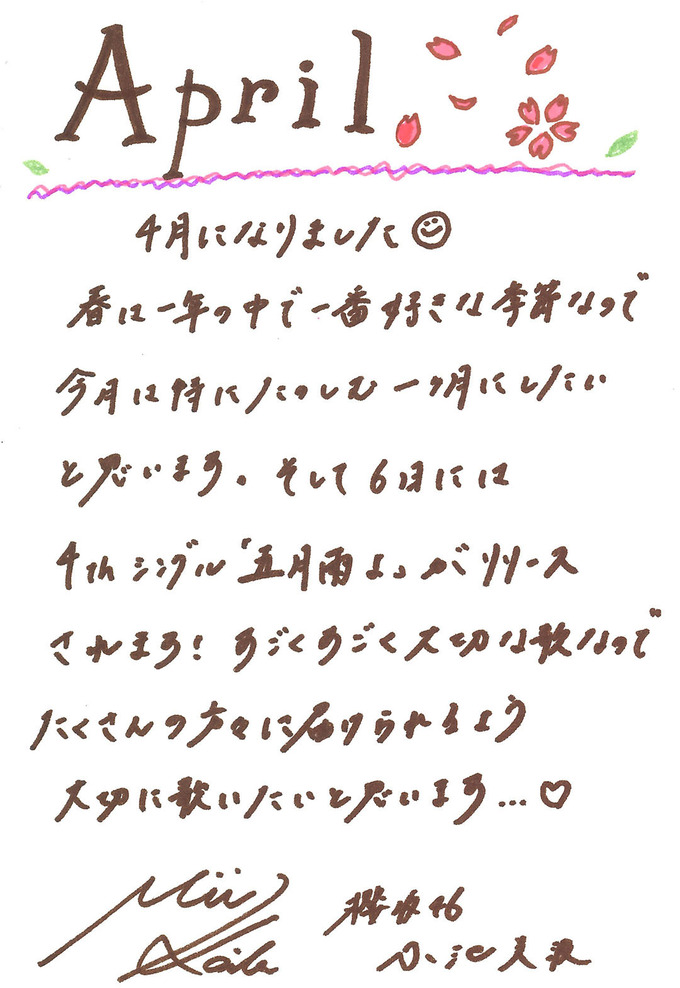 April
4月になりました
春は一年の中で一番好きな季節なので
今月は特にたのしむ一ヶ月にしたい
と思います。そして6月には
4thシングル「五月雨よ」がリリース
されます! すごくすごく大切な歌なので
たくさんの方々に届けられるよう
大切に歌いたいと思います...♡
櫻坂46
小池美波